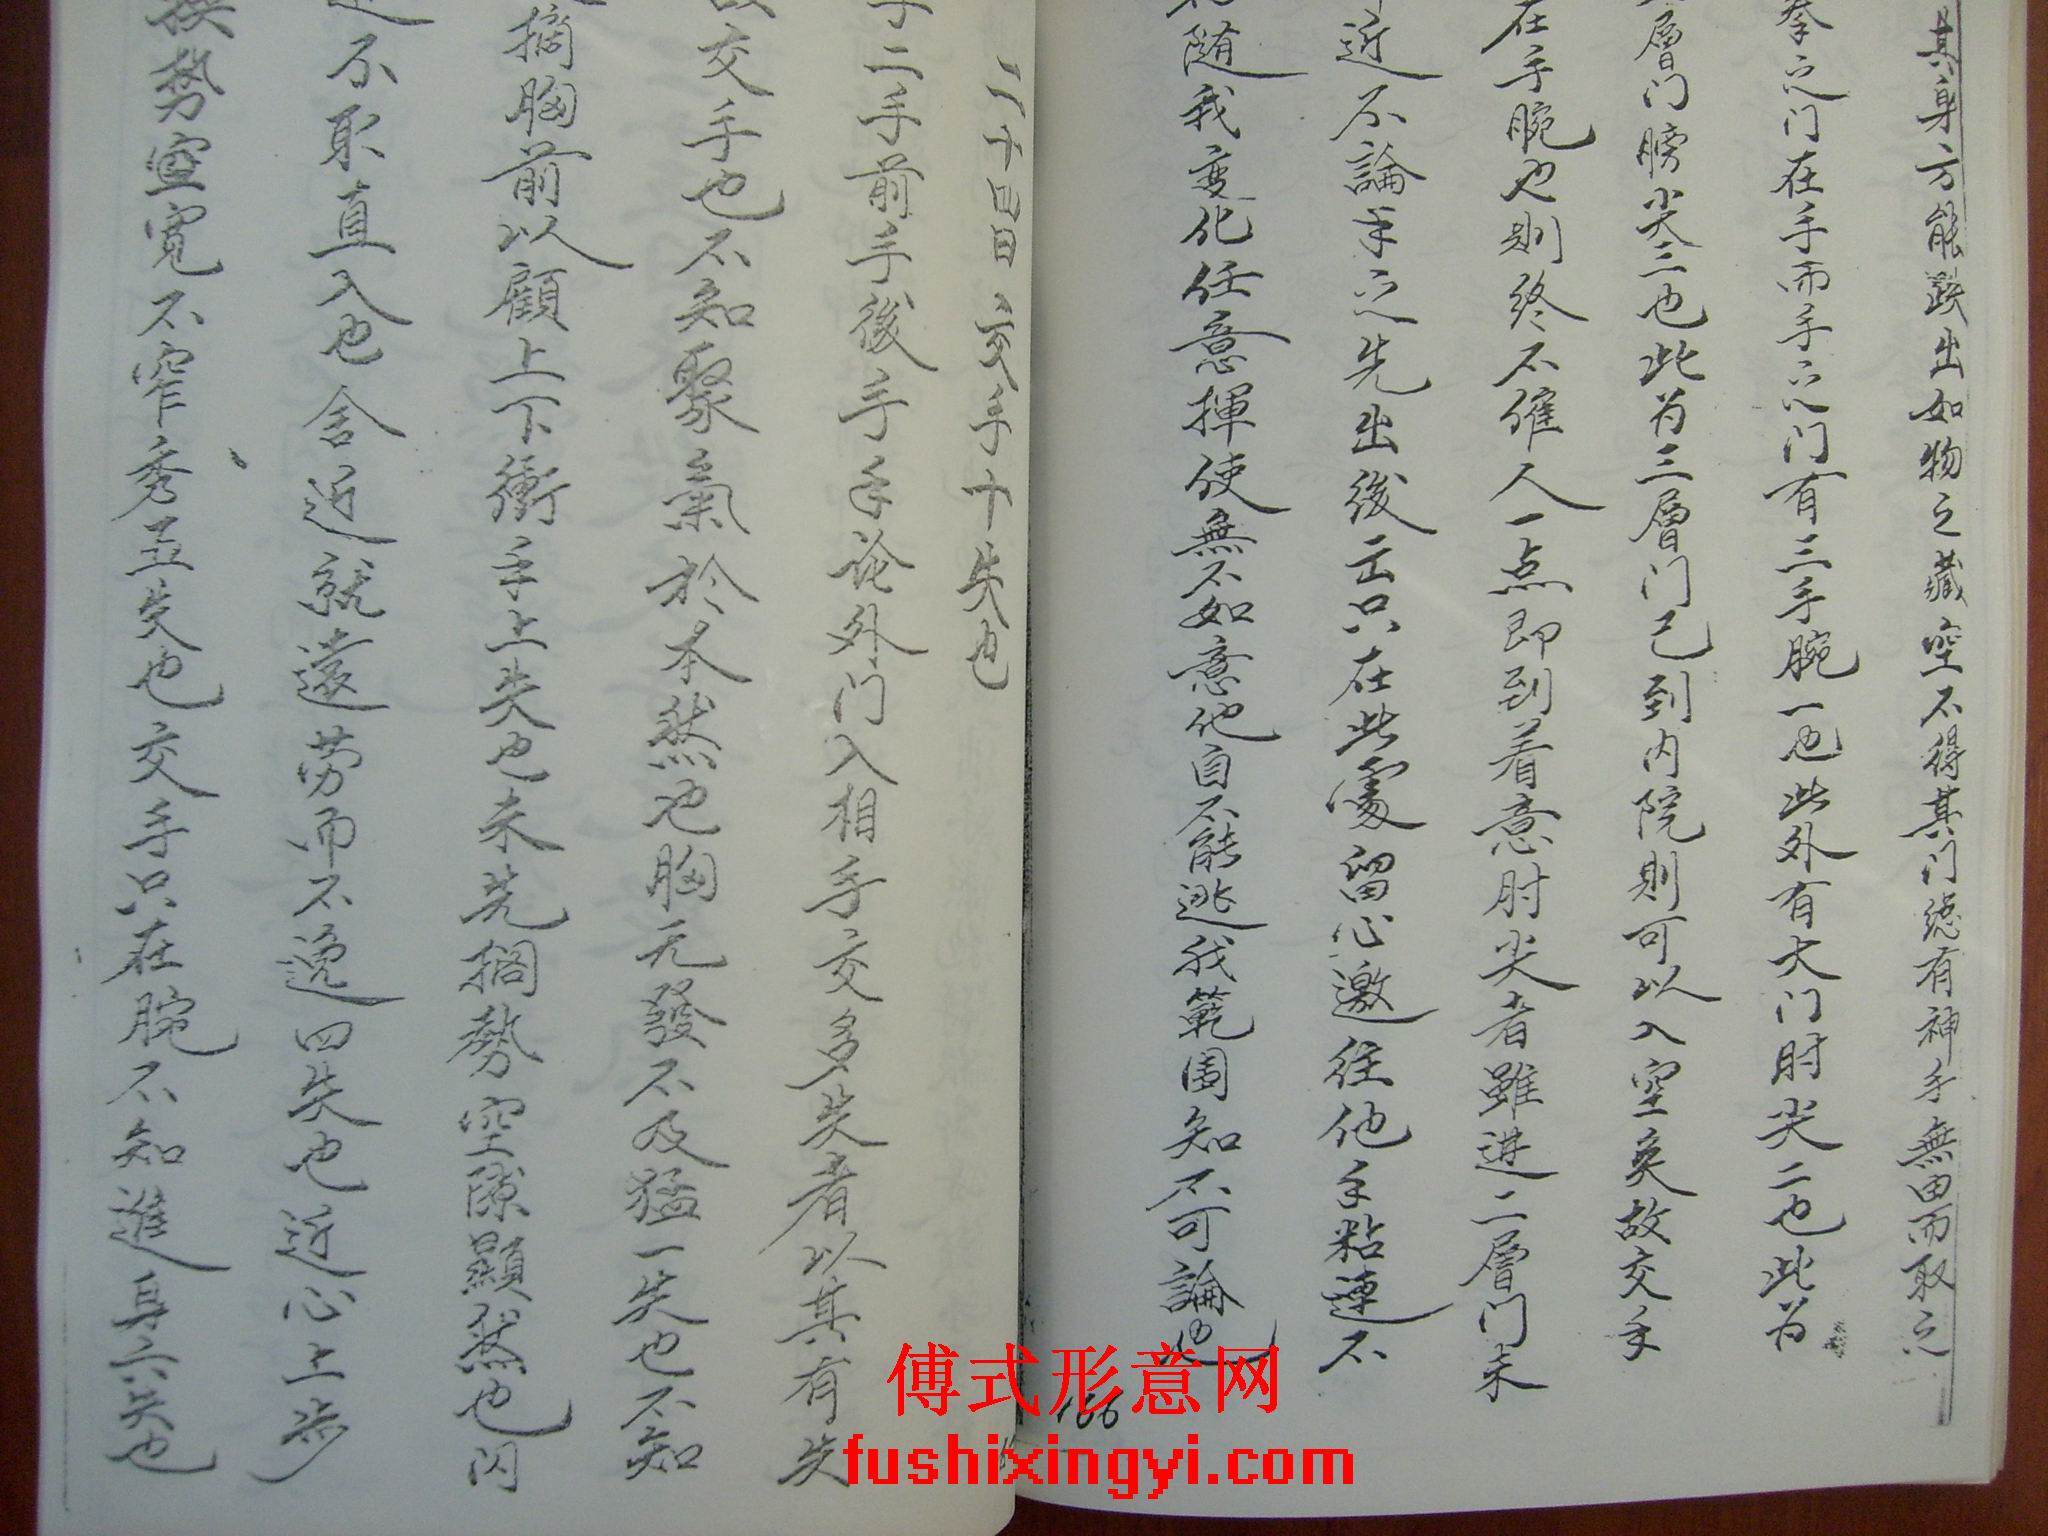 其身方能跌出如物之藏空不得其门总有神手無由而取之
拳之门在手而手之门有三手腕一也此外有大门肘尖二也此为
層门膀尖三也此为三層门已到内院則可以入室矣故交手
在手腕也則终不催人一点即到着意肘尖者雖进二層门未
近不論手之先出後出只在此處留心邀往他手粘連不
随我变化任意揮使無不如意他自不能逃我範围知不可論也
166
二十四曰 交手十失也
手二手前手後手手论外门入相手交多失者以其有失
交手也不知聚氣於本然也胸无發不及猛一失也不知
摛胸前以顧上下衝手上失也未先搁勢空隙顯然也闪
不取直入也舍近就遠劳而不逸四失也近心上步
换勢宜宽不窄秀五失也交手只在腕不知進身六失也
傅式形意网
fushixingyi.com